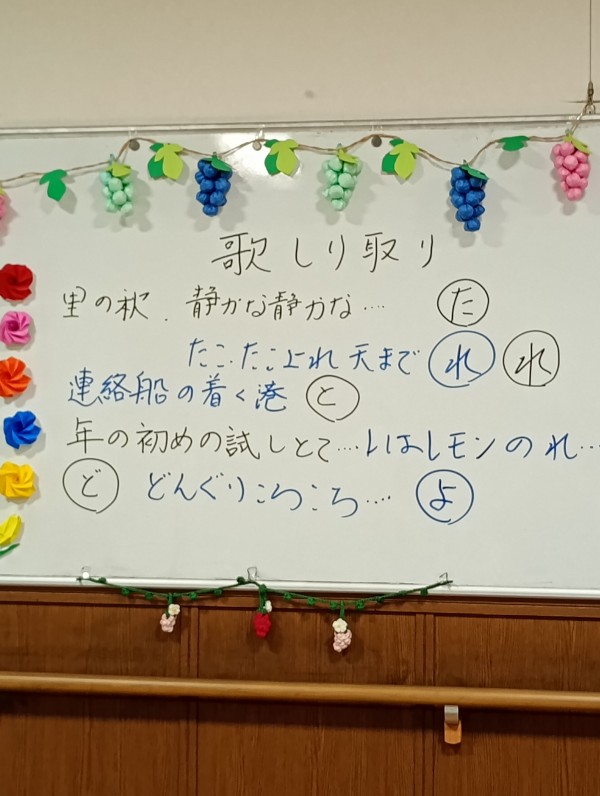 歌しり取り
里の秋. 静かな静かな…. た
たこ.たこ上れ 天まで れ れ
連絡船の着く港 と
年の初めの試しとて…. LはレモンのれL…
ど どんぐりころころ…. よ